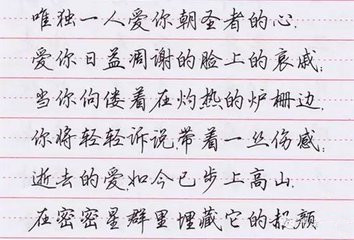 唯独一人爱你朝圣者的心.
爱你日益凋谢的脸上的哀戚;
当你佝偻着在灼热的炉栅边.
你将轻轻诉说,带着一丝伤感;
逝去的爱如今已步上高山.
在密密星群里埋藏它的赧颜